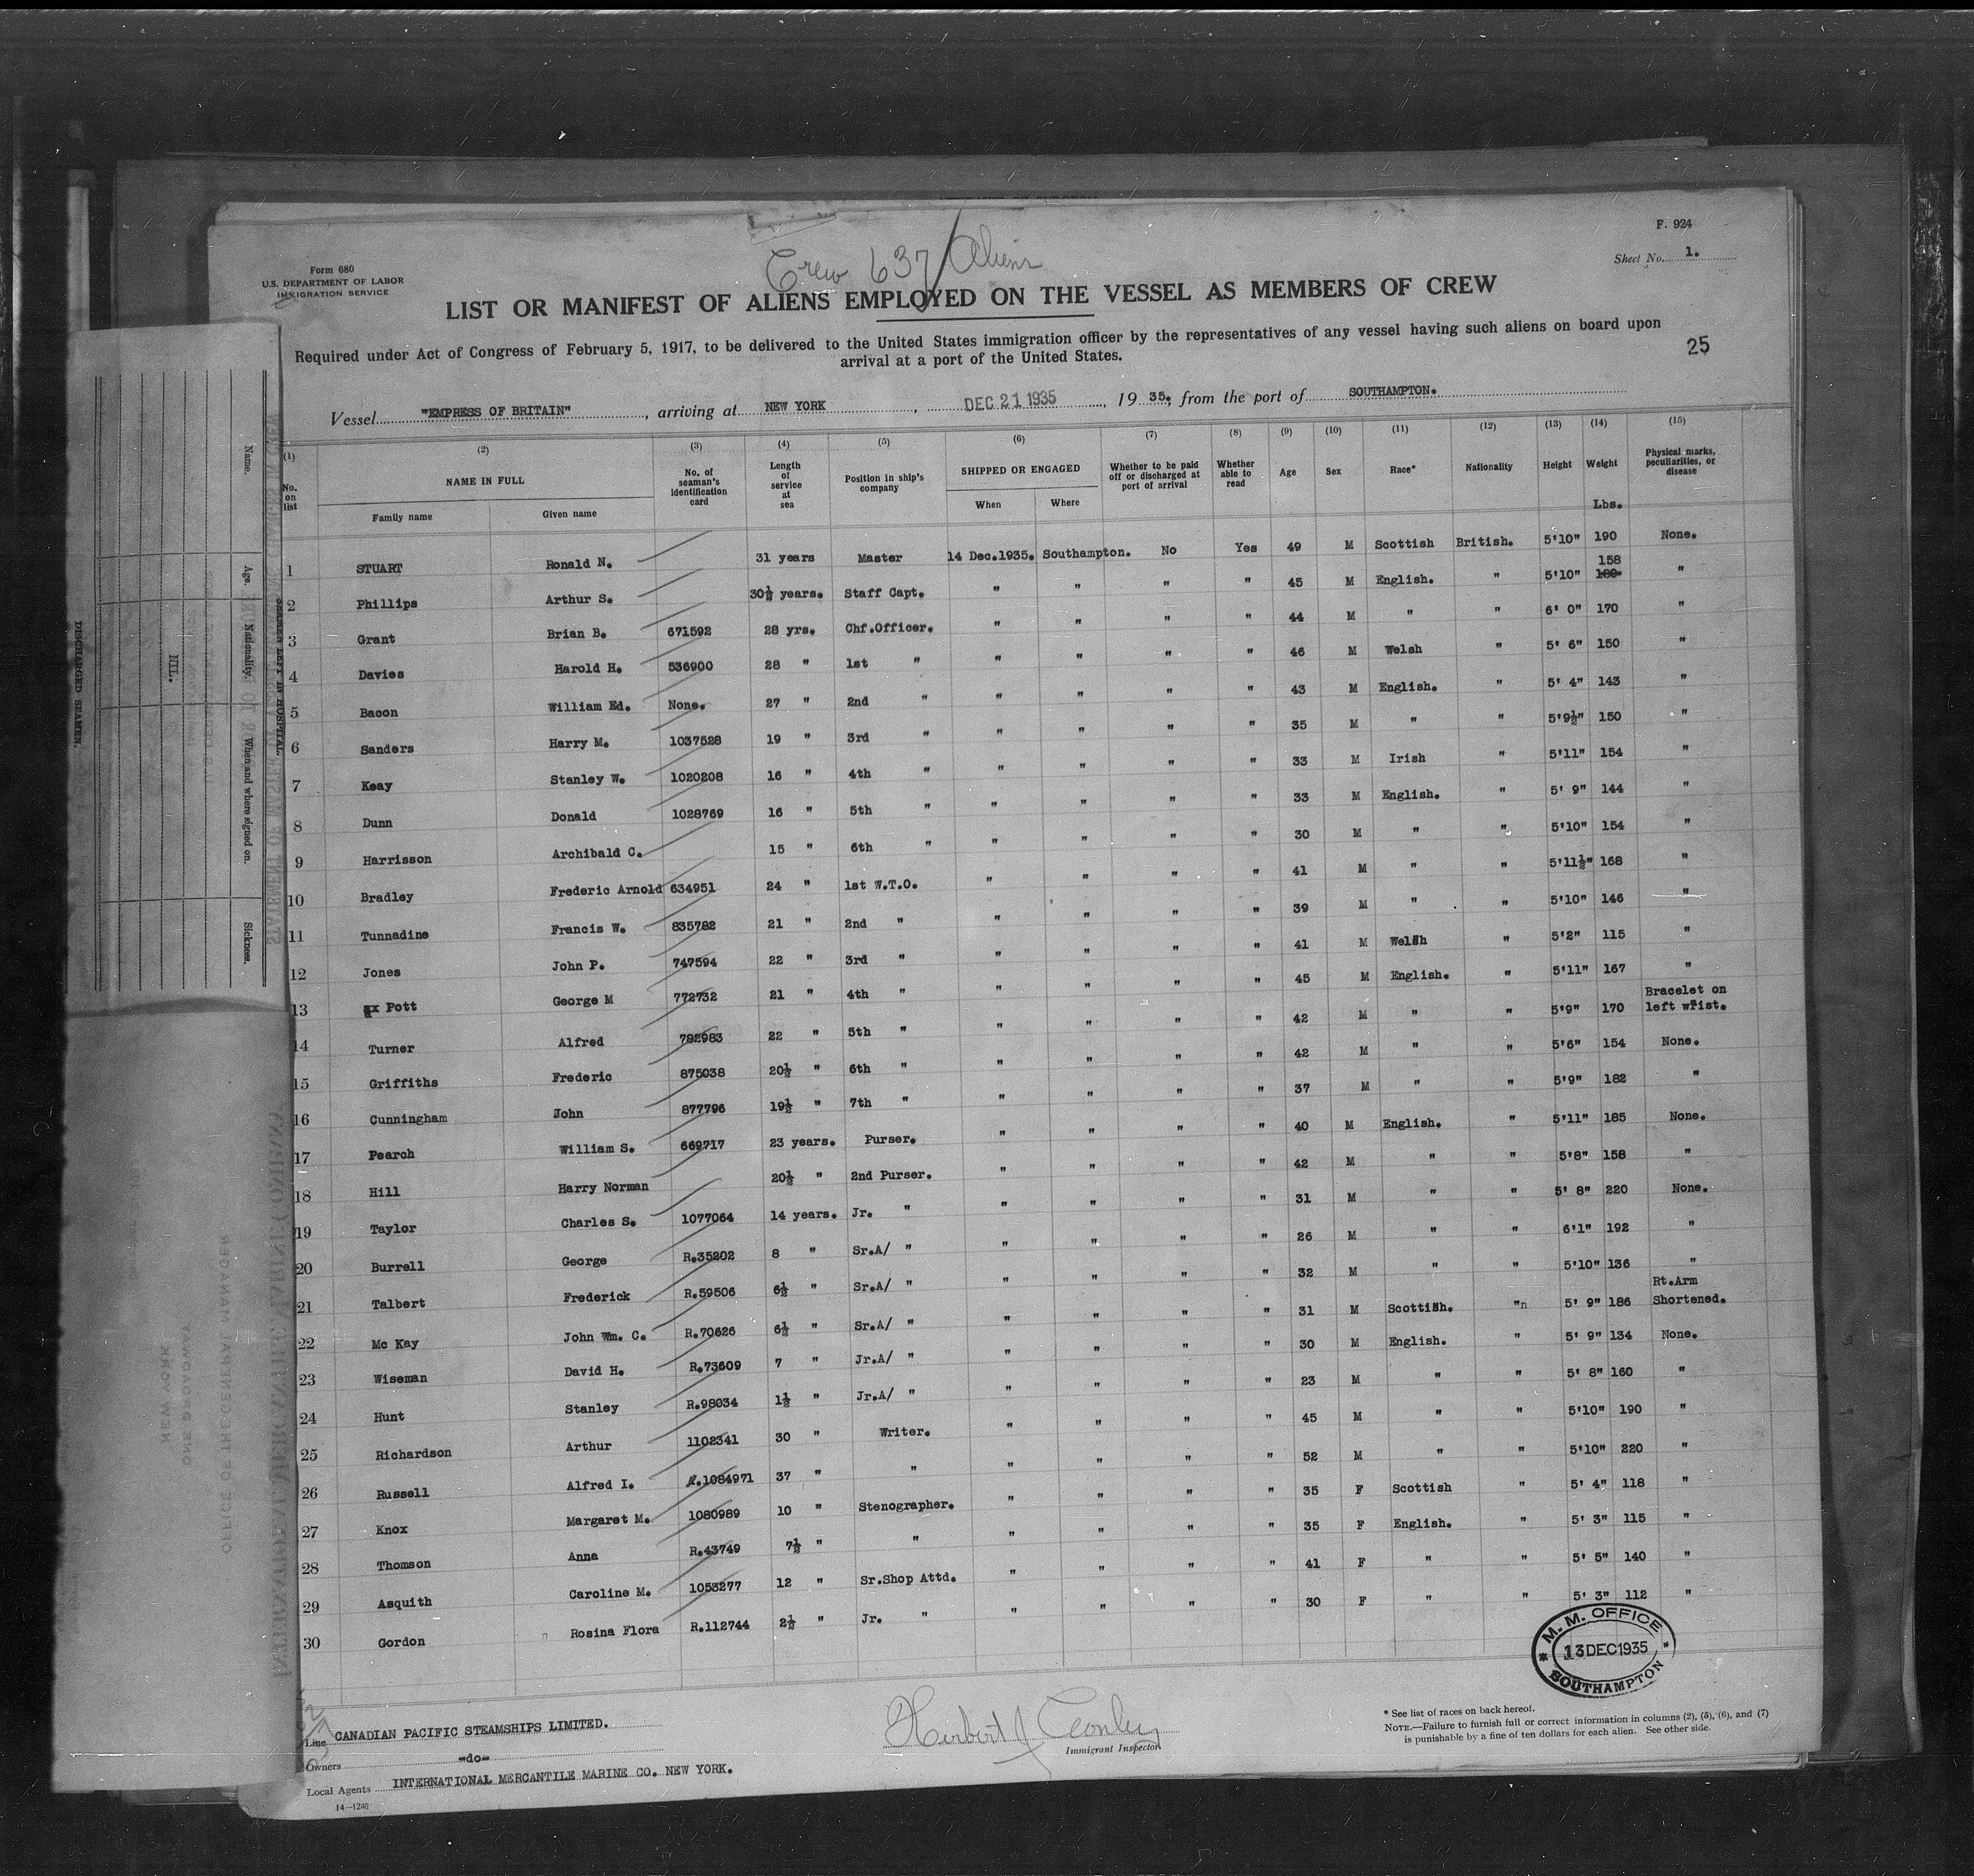 F. 924
Sheet No. 1.
Crew 637 Aliens
Form 680
U.S. DEPARTMENT OF LABOR
IMMIGRATION SERVICE
LIST OR MANIFEST OF ALIENS EMPLOYED ON THE VESSEL AS MEMBERS OF CREW
Required under Act of Congress of February 5, 1917, to be delivered to the United States immigration officer by the representatives of any vessel having such aliens on board upon
arrival at a port of the United States.
25
Vessel "EMPRESS OF BRITAIN", arriving at NEW YORK, DEC 21 1935, 19 35, from the port of SOUTHAMPTON.
(1) (2) (3) (4) (5) (6) (7) (8) (9) (10) (11) (12) (13) (14) (15)
No. on list NAME IN FULL Family name Given name No. of seaman's identification card Length of service at sea Position in ship's company SHIPPED OR ENGAGED When Where Whether to be paid off or discharged at port of arrival Whether able to read Age Sex Race* Nationality Height Weight Lbs. Physical marks, peculiarities, or disease
1 STUART Ronald N. 31 years Master 14 Dec.1935. Southampton. No Yes 49 M Scottish British. 5'10" 190 None.
2 Phillips Arthur S. 30½ years. Staff Capt. " " " " 45 M English. " 5'10" 158 180 "
3 Grant Brian B. 671592 28 yrs. Chf.Officer. " " " " 44 M " " 6' 0" 170 "
4 Davies Harold H. 536900 28 " 1st " " " " " 46 M Welsh " 5' 6" 150 "
5 Bacon William Ed. None. 27 " 2nd " " " " " 43 M English. " 5' 4" 143 "
6 Sanders Harry M. 1037528 19 " 3rd " " " " " 35 M " " 5'9½" 150 "
7 Keay Stanley W. 1020208 16 " 4th " " " " " 33 M Irish " 5'11" 154 "
8 Dunn Donald 1028769 16 " 5th " " " " " 33 M English. " 5' 9" 144 "
9 Harrisson Archibald C. 15 " 6th " " " " " 30 M " " 5'10" 154 "
10 Bradley Frederic Arnold 634951 24 " 1st W.T.O. " " " " 41 M " " 5'11½" 168 "
11 Tunnadine Francis W. 835782 21 " 2nd " " " " " 39 M " " 5'10" 146 "
12 Jones John P. 747594 22 " 3rd " " " " " 41 M Welsh " 5'2" 115 "
13 Pott George M 772732 21 " 4th " " " " " 45 M English. " 5'11" 167 "
14 Turner Alfred 782983 22 " 5th " " " " " 42 M " " 5'9" 170 Bracelet on left wrist.
15 Griffiths Frederic 875038 20½ " 6th " " " " " 42 M " " 5'6" 154 None.
16 Cunningham John 877796 19½ " 7th " " " " " 37 M " " 5'9" 182 "
17 Pearch William S. 669717 23 years. Purser. " " " " 40 M English. " 5'11" 185 None.
18 Hill Harry Norman 20½ " 2nd Purser. " " " " 42 M " " 5'8" 158 "
19 Taylor Charles S. 1077064 14 years. Jr. " " " " " 31 M " " 5' 8" 220 None.
20 Burrell George R.35202 8 " Sr.A/ " " " " " 26 M " " 6'1" 192 "
21 Talbert Frederick R.59506 6½ " Sr.A/ " " " " " 32 M " " 5'10" 136 "
22 Mc Kay John Wm. C. R.70626 6½ " Sr.A/ " " " " " 31 M Scottish. "n 5' 9" 186 Rt.Arm Shortened.
23 Wiseman David H. R.73609 7 " Jr.A/ " " " " " 30 M English. " 5' 9" 134 None.
24 Hunt Stanley R.98034 1½ " Jr.A/ " " " " " 23 M " " 5' 8" 160 "
25 Richardson Arthur 1102341 30 " Writer. " " " " 45 M " " 5'10" 190 "
26 Russell Alfred I. 1084971 37 " " " " " " 52 M " " 5'10" 220 "
27 Knox Margaret M. 1080989 10 " Stenographer. " " " " 35 F Scottish " 5' 4" 118 "
28 Thomson Anna R.43749 7½ " " " " " " 35 F English. " 5' 3" 115 "
29 Asquith Caroline M. 1053277 12 " Sr.Shop Attd. " " " " 41 F " " 5' 5" 140 "
30 Gordon Rosina Flora R.112744 2½ " Jr. " " " " " 30 F " " 5' 3" 112 "
M. M. OFFICE
13 DEC 1935
SOUTHAMPTON
Line CANADIAN PACIFIC STEAMSHIPS LIMITED.
Owners -do-
Local Agents INTERNATIONAL MERCANTILE MARINE CO. NEW YORK.
14—1240
Herbert J
Immigrant Inspector
* See list of races on back hereof.
NOTE.—Failure to furnish full or correct information in columns (2), (5), (6), and (7)
is punishable by a fine of ten dollars for each alien. See other side.
DISCHARGED SEAMEN.
NIL.
Name. Age. Nationality. When and where signed on. Sickness.
OFFICE OF THE GENERAL MANAGER
ONE BROADWAY
NEW YORK